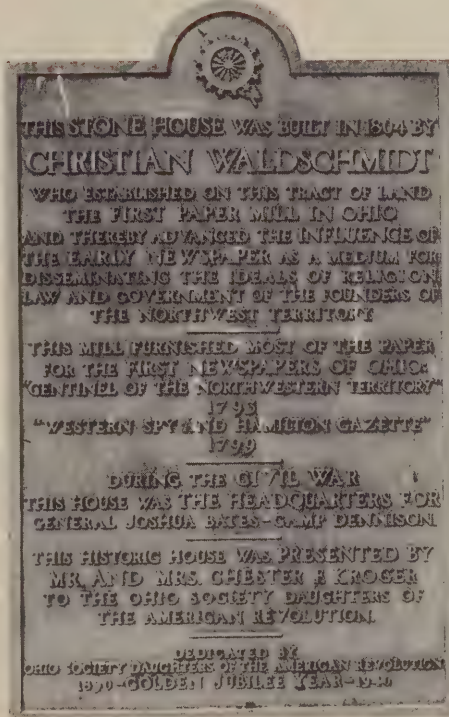 THIS STONE HOUSE WAS BUILT IN 1804 BY
CHRISTIAN WALDSCHMIDT
WHO ESTABLISHED ON THIS TRACT OF LAND
THE FIRST PAPER MILL IN OHIO
AND THEREBY ADVANCED THE INFLUENCE OF
THE EARLY NEWSPAPER AS A MEDIUM FOR
DISSEMINATING THE IDEALS OF RELIGION
LAW AND GOVERNMENT OF THE FOUNDERS OF
THE NORTHWEST TERRITORY
THIS MILL FURNISHED MOST OF THE PAPER
FOR THE FIRST NEWSPAPERS OF OHIO:
"CENTINEL OF THE NORTHWESTERN TERRITORY"
1793
"WESTERN SPY AND HAMILTON GAZETTE"
1799
DURING THE CIVIL WAR
THIS HOUSE WAS THE HEADQUARTERS FOR
GENERAL JOSHUA BATES-CAMP DENNISON
THIS HISTORIC HOUSE WAS PRESENTED BY
MR. AND MRS. CHESTER F. KROGER
TO THE OHIO SOCIETY DAUGHTERS OF
THE AMERICAN REVOLUTION.
DEDICATED BY
OHIO SOCIETY DAUGHTERS OF THE AMERICAN REVOLUTION
1890-GOLDEN JUBILEE YEAR-1940